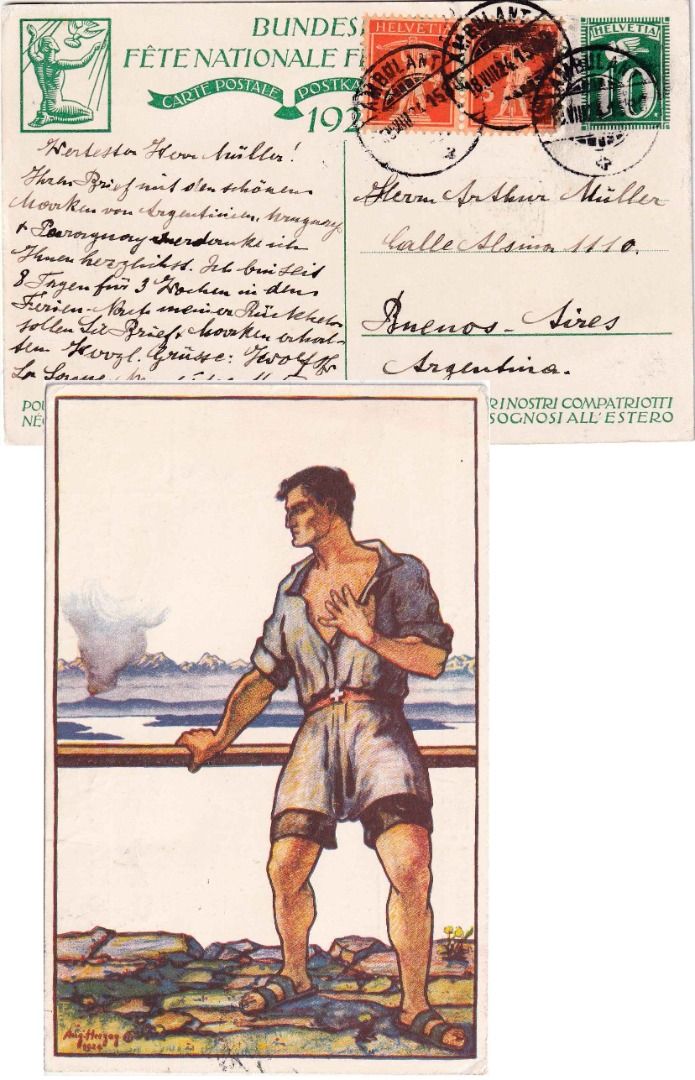 BUNDES
FÊTE NATIONALE F
CARTE POSTALE POSTKA
192
HELVETIA
HELVETIA
10
AMBULANT
AMBULANT
AMBULANT
Wertester Herr Müller!
Ihren Brief mit den schönen
Marken von Argentinien, Uruguay
+ Paraguay verdanke ich
Ihnen herzlichst. Ich bin seit
8 Tagen für 3 Wochen in den
Ferien. Nach meiner Rückkehr
sollen Sie Brief + Marken erhal-
ten. Herzl. Grüsse:
Herrn Arthur Müller
Calle Alsina 1110.
Buenos-Aires
Argentina.
PO
NÉ
RI NOSTRI COMPATRIOTTI
SOGNOSI ALL'ESTERO
Aug. Herzog
1924